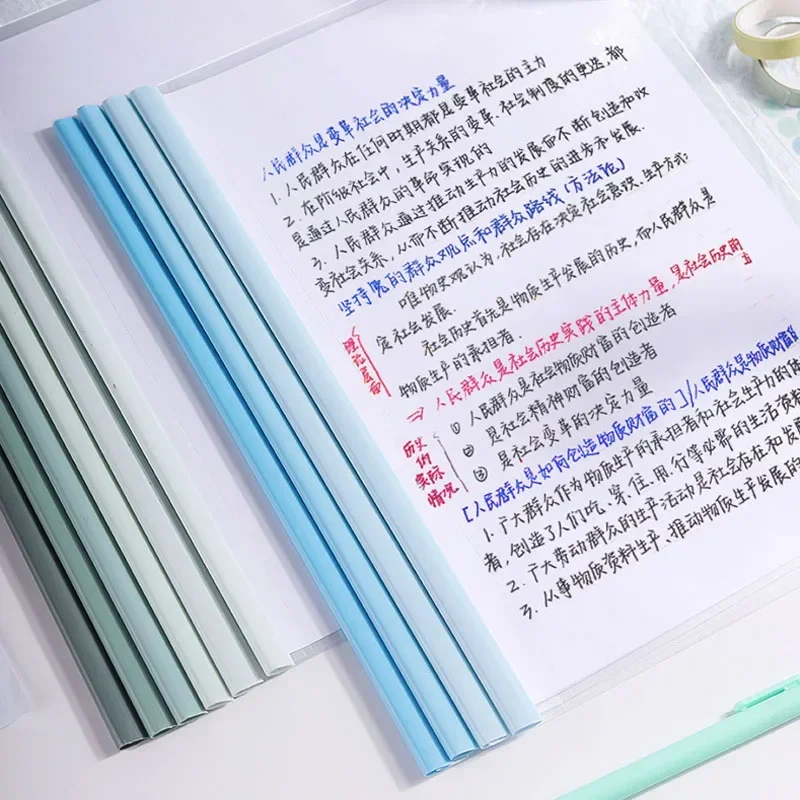 人民群众是变革社会的决定力量
1. 人民群众在任何时期都是变革社会的主力
2. 在阶级社会中，生产关系的变革、社会制度的更迭，都
是通过人民群众的革命实现的
3. 人民群众通过推动生产力的发展而不断创造和改
变社会关系，从而不断推动社会历史的进步和发展.
坚持党的群众观点和群众路线（方法论）
唯物史观认为，社会存在决定社会意识，生产方式
定社会发展.
社会历史首先是物质生产发展的历史，而人民群众是
物质生产的承担者.
理论层面
⇒ 人民群众是社会历史实践的主体力量，是社会历史的
① 人民群众是社会物质财富的创造者
② 是社会精神财富的创造者
③ 是社会变革的决定力量
历史
的
实际
情况
[人民群众是如何创造物质财富的]/人民群众是物质财富
1. 广大群众作为物质生产的承担者和社会生产力的
者，创造了人们吃、穿、住、用、行等必需的生活资料
2. 广大劳动群众的生产活动是社会存在和发
3. 从事物质资料生产、推动物质生产发展的